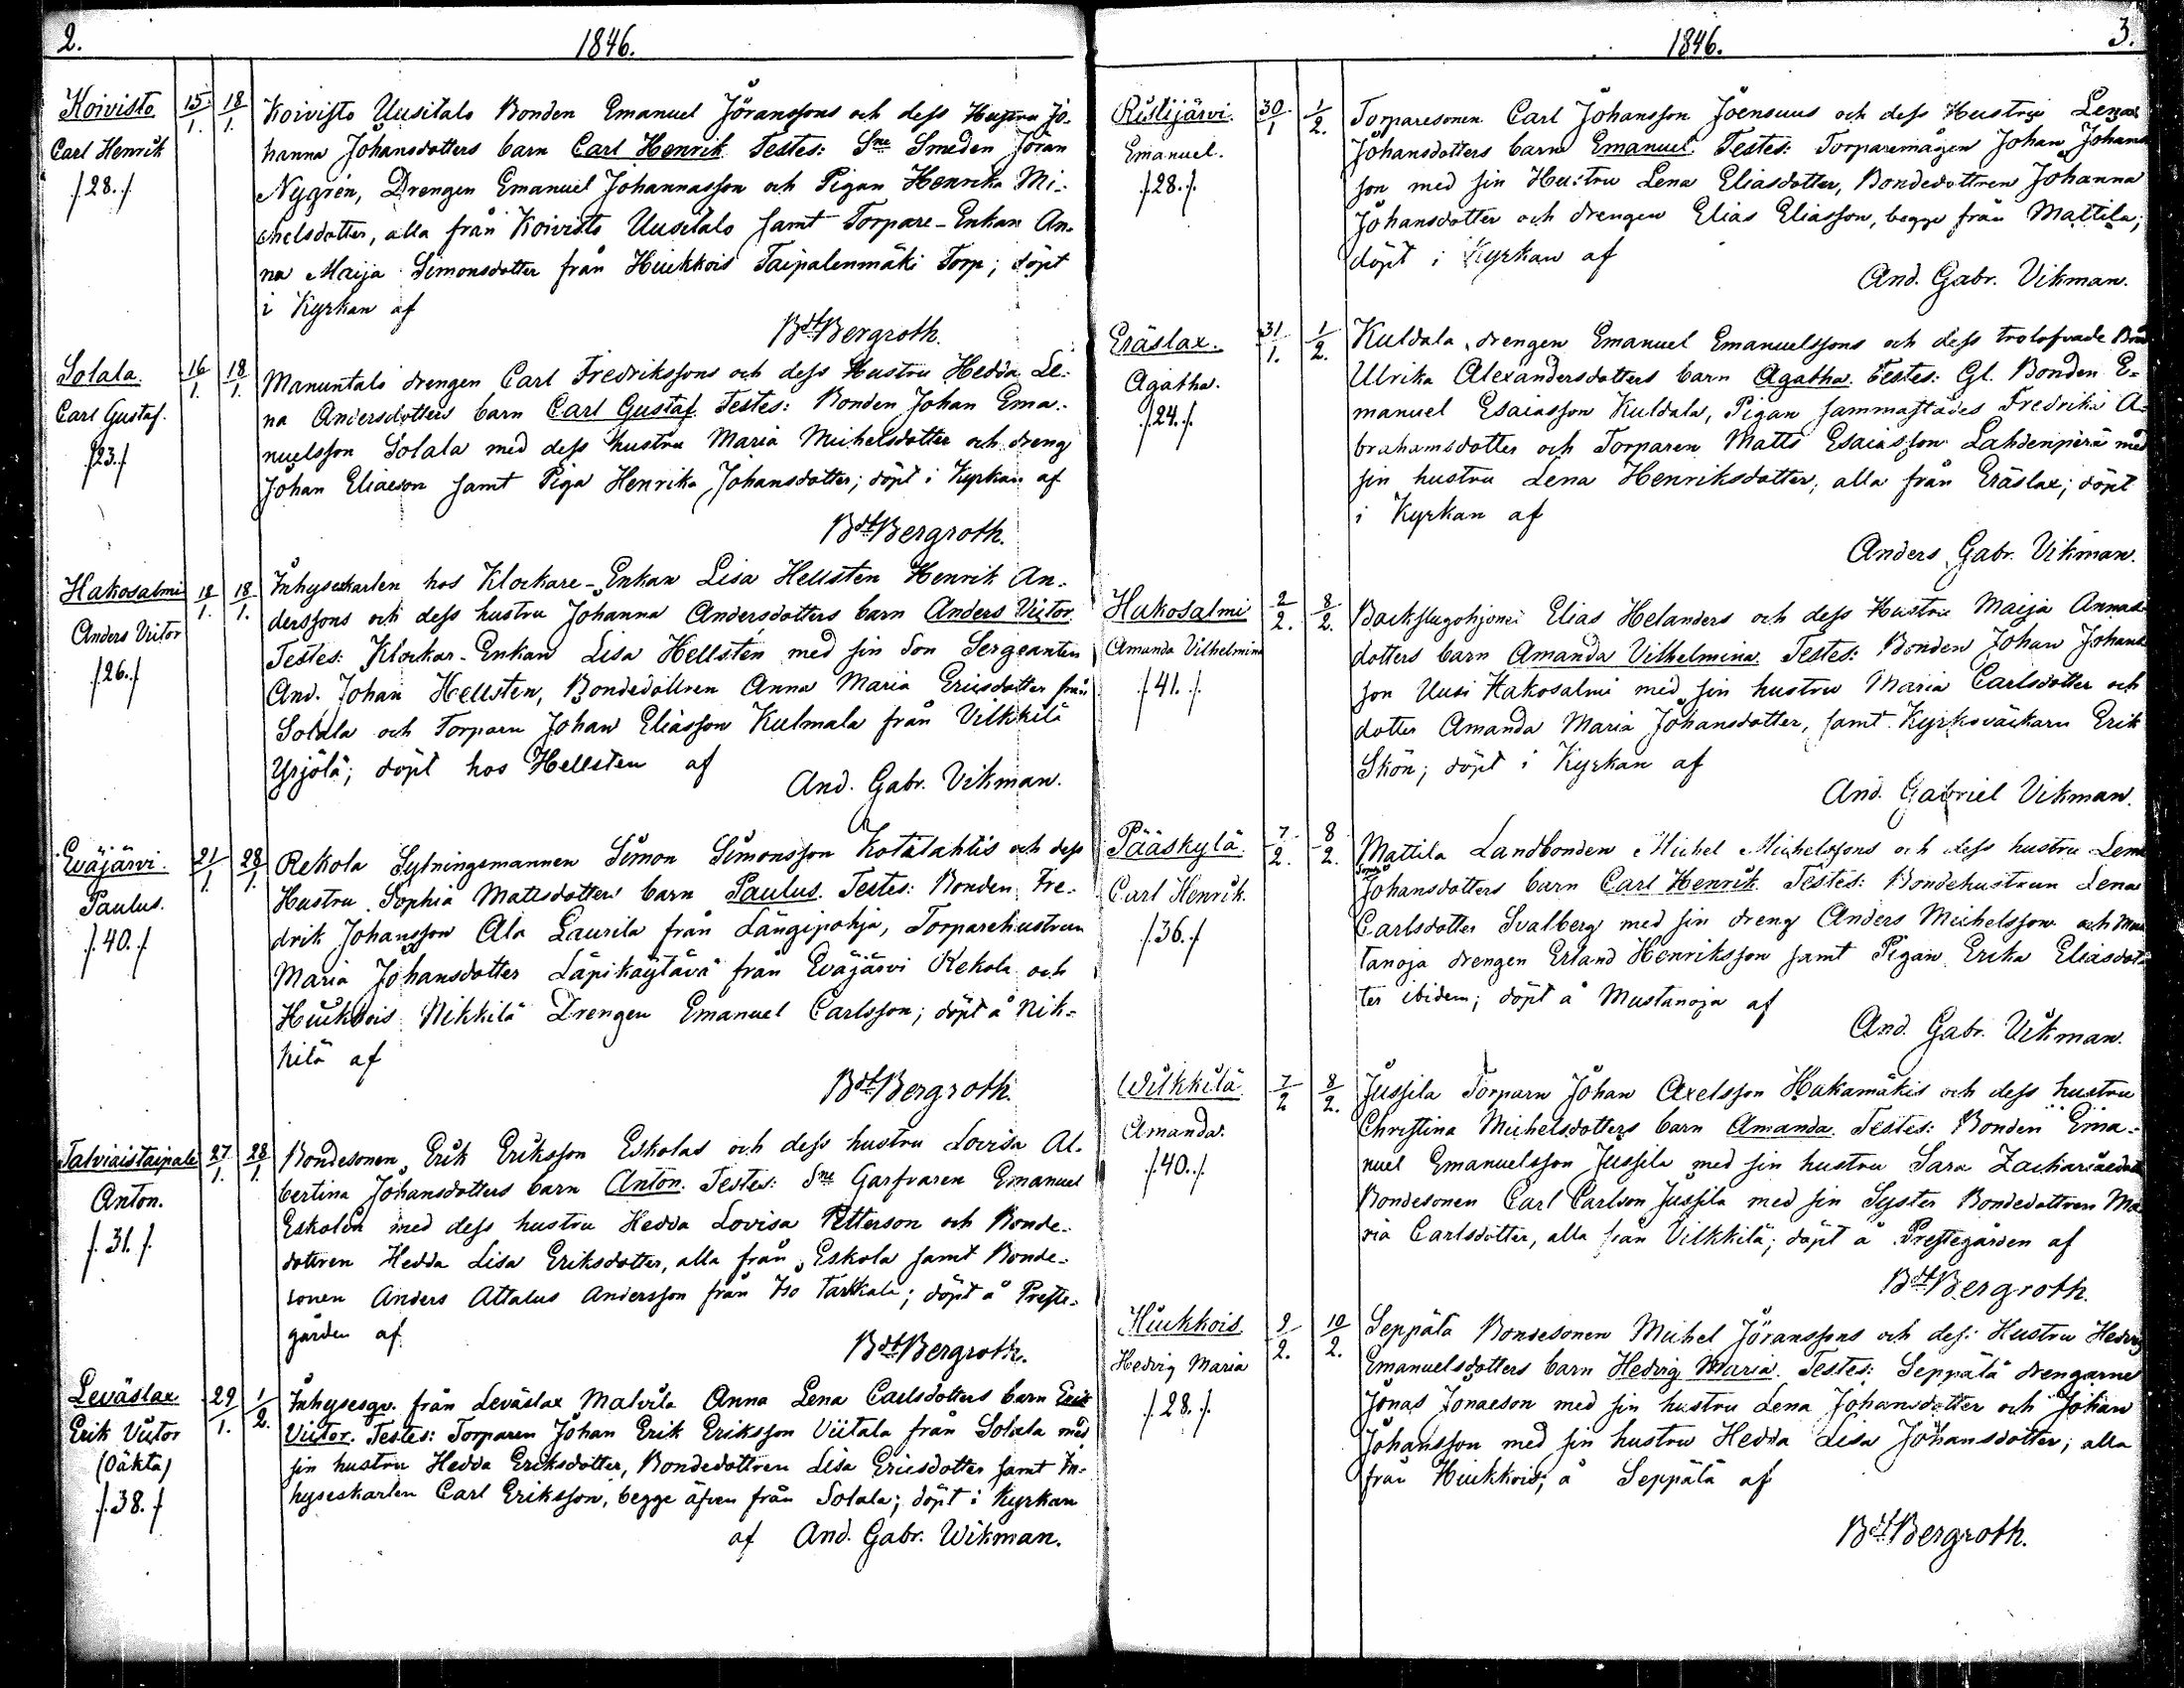 2.
1846.
Koivisto 15/1. 18/1.
Carl Henrik
/28./
Koivisto Uusitalo Bonden Emanuel Jöranssons och dess Hustru Jo-
hanna Johansdotters barn Carl Henrik. Testes: Sne Smeden Jöran
Nygrén, Drengen Emanuel Johannasson och Pigan Henrika Mi-
chelsdotter, alla från Koivisto Uusitalo samt Torpare-Enkan An-
na Maija Simonsdotter från Hiukkois Taipalenmäki Torp; döpt
i Kyrkan af
Bdt Bergroth.
Solala. 16/1. 18/1.
Carl Gustaf.
/23./
Manuntalo drengen Carl Fredrikssons och dess Hustru Hedda Le-
na Andersdotters barn Carl Gustaf. Testes: Bonden Johan Ema-
nuelsson Solala med dess hustru Maria Michelsdotter och dreng
Johan Eliaeson samt Piga Henrika Johansdotter; döpt i Kyrkan af
Bdt Bergroth.
Hakosalmi 18/1. 18/1.
Anders Victor
/26./
Inhyseskarlen hos Klockare-Enkan Lisa Hellsten Henrik An-
derssons och dess hustru Johanna Andersdotters barn Anders Victor.
Testes: Klockar-Enkan Lisa Hellsten med sin Son Sergeanten
And. Johan Hellsten, Bondedottren Anna Maria Ericsdotter från
Solala och Torparn Johan Eliasson Kulmala från Vilkkilä
Yrjölä; döpt hos Hellsten af
And. Gabr. Vikman.
Eväjärvi. 21/1. 28/1.
Paulus.
/40./
Rekola Sytningsmannen Simon Simonsson Kotalahtis och dess
Hustru Sophia Mattsdotters barn Paulus. Testes: Bonden Fre-
drik Johansson Ala Laurila från Längipohja, Torparehustrun
Maria Johansdotter Läpikäytävä från Eväjärvi Rekola och
Hiukkois Nikkilä Drengen Emanuel Carlsson; döpt å Nik-
kilä af
Bdt Bergroth.
Talviaistaipale 27/1. 28/1.
Anton.
/31./
Bondesonen Erik Eriksson Eskolas och dess hustru Lovisa Al-
bertina Johansdotters barn Anton. Testes: Sne Garfvaren Emanuel
Eskolin med dess hustru Hedda Lovisa Petterson och Bonde-
dottren Hedda Lisa Eriksdotter, alla från Eskola samt Bonde-
sonen Anders Attalus Andersson från Iso Tarkkala; döpt å Preste-
gården af
Bdt Bergroth.
Leväslax 29/1. 1/2.
Erik Victor
(Oäkta)
/38./
Inhysesqv. från Leväslax Malvila Anna Lena Carlsdotters barn Erik
Victor. Testes: Torparen Johan Erik Eriksson Viitala från Solala med
sin hustru Hedda Eriksdotter, Bondedottren Lisa Ericsdotter samt In-
hyseskarlen Carl Eriksson, begge äfven från Solala; döpt i Kyrkan
af And. Gabr. Wikman.
1846.
3.
Ristijärvi. 30/1 1/2.
Emanuel.
/28./
Torparesonen Carl Johansson Joensuus och dess Hustru Lena
Johansdotters barn Emanuel. Testes: Torparemågen Johan Johans
son med sin Hustru Lena Eliasdotter, Bondedottren Johanna
Johansdotter och drengen Elias Eliasson, begge från Mattila;
döpt i Kyrkan af
And. Gabr. Vikman.
Eräslax. 31/1. 1/2.
Agatha.
/24./
Kuldala drengen Emanuel Emanuelssons och dess trolofvade Brud
Ulrika Alexandersdotters barn Agatha. Testes: Gl. Bonden E-
manuel Esaiasson Kuldala, Pigan sammastädes Fredrika A-
brahamsdotter och Torparen Matts Esaiasson Lahdenperä med
sin hustru Lena Henriksdotter; alla från Eräslax; döpt
i Kyrkan af
Anders Gabr. Vikman.
Hakosalmi 2/2. 8/2.
Amanda Vilhelmina
/41./
Backstugohjonet Elias Helanders och dess Hustru Maija Annas-
dotters barn Amanda Vilhelmina. Testes: Bonden Johan Johans
son Uusi Hakosalmi med sin hustru Maria Carlsdotter och
dotter Amanda Maria Johansdotter, samt Kyrkoväckarn Erik
Skön; döpt i Kyrkan af
And. Gabriel Vikman.
Pääskylä. 7/2. 8/2.
Carl Henrik.
/36./
Mattila Landbonden Michel Michelssons och dess hustru Lena
Johansdotters barn Carl Henrik. Testes: Bondehustrun Lena
Carlsdotter Svalberg med sin dreng Anders Michelsson och Mus
tanoja drengen Erland Henriksson samt Pigan Erika Eliasdot
ter ibidem; döpt å Mustanoja af
And. Gabr. Vikman.
Wilkkilä 7/2 8/2.
Amanda.
/40./
Jussila Torparn Johan Axelsson Hakamäkis och dess hustru
Christina Michelsdotters barn Amanda. Testes: Bonden Ema-
nuel Emanuelsson Jussila med sin hustru Sara Zachariaedott
Bondesonen Carl Carlson Jussila med sin Syster Bondedottren Ma
ria Carlsdotter, alla från Vilkkilä; döpt å Prestegården af
Bdt Bergroth.
Hiukkois 9/2. 10/2.
Hedvig Maria
/28./
Seppälä Bondesonen Michel Jöranssons och dess Hustru Hedvig
Emanuelsdotters barn Hedvig Maria. Testes: Seppälä drengarne
Jonas Jonaeson med sin hustru Lena Johansdotter och Johan
Johansson med sin hustru Hedda Lisa Johansdotter; alla
från Hiukkois; å Seppälä af
Bdt Bergroth.